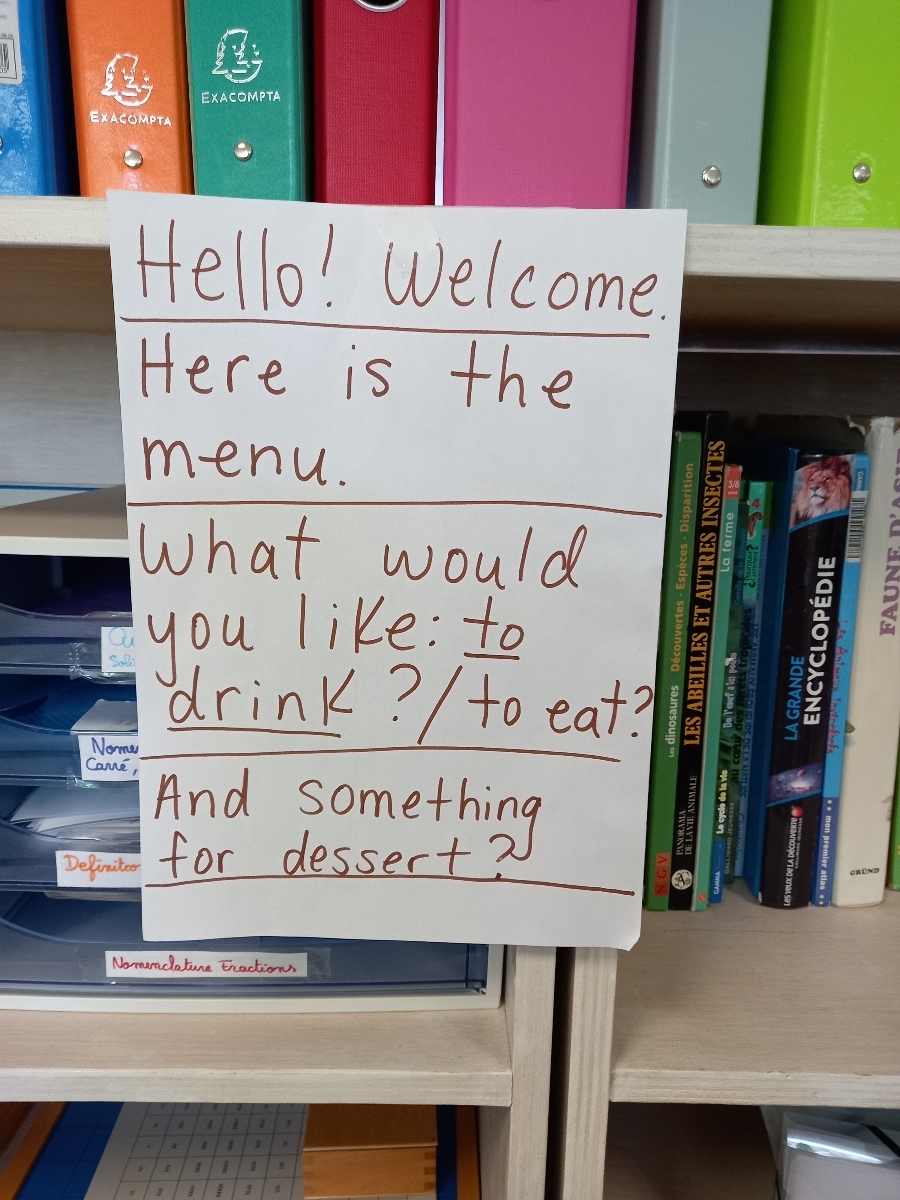 EXACOMPTA
EXACOMPTA
Hello! Welcome.
Here is the
menu.
What would
you like: to
drink ?/to eat?
And something
for dessert?
Qu
Soli
Nome
Carré,
Nomenclature Fractions
Les dinosaures Découvertes · Espèces · Disparition
NGV
LES ABEILLES ET AUTRES INSECTES
PANORAMA
DE LA VIE ANIMALE
3/6
La ferme
Le cycle de la vie
GAMMA
4
LA GRANDE
ENCYCLOPÉDIE
LES YEUX DE LA DÉCOUVERTE
mon premier atlas
FAUNE D'ASIE
GRÜND